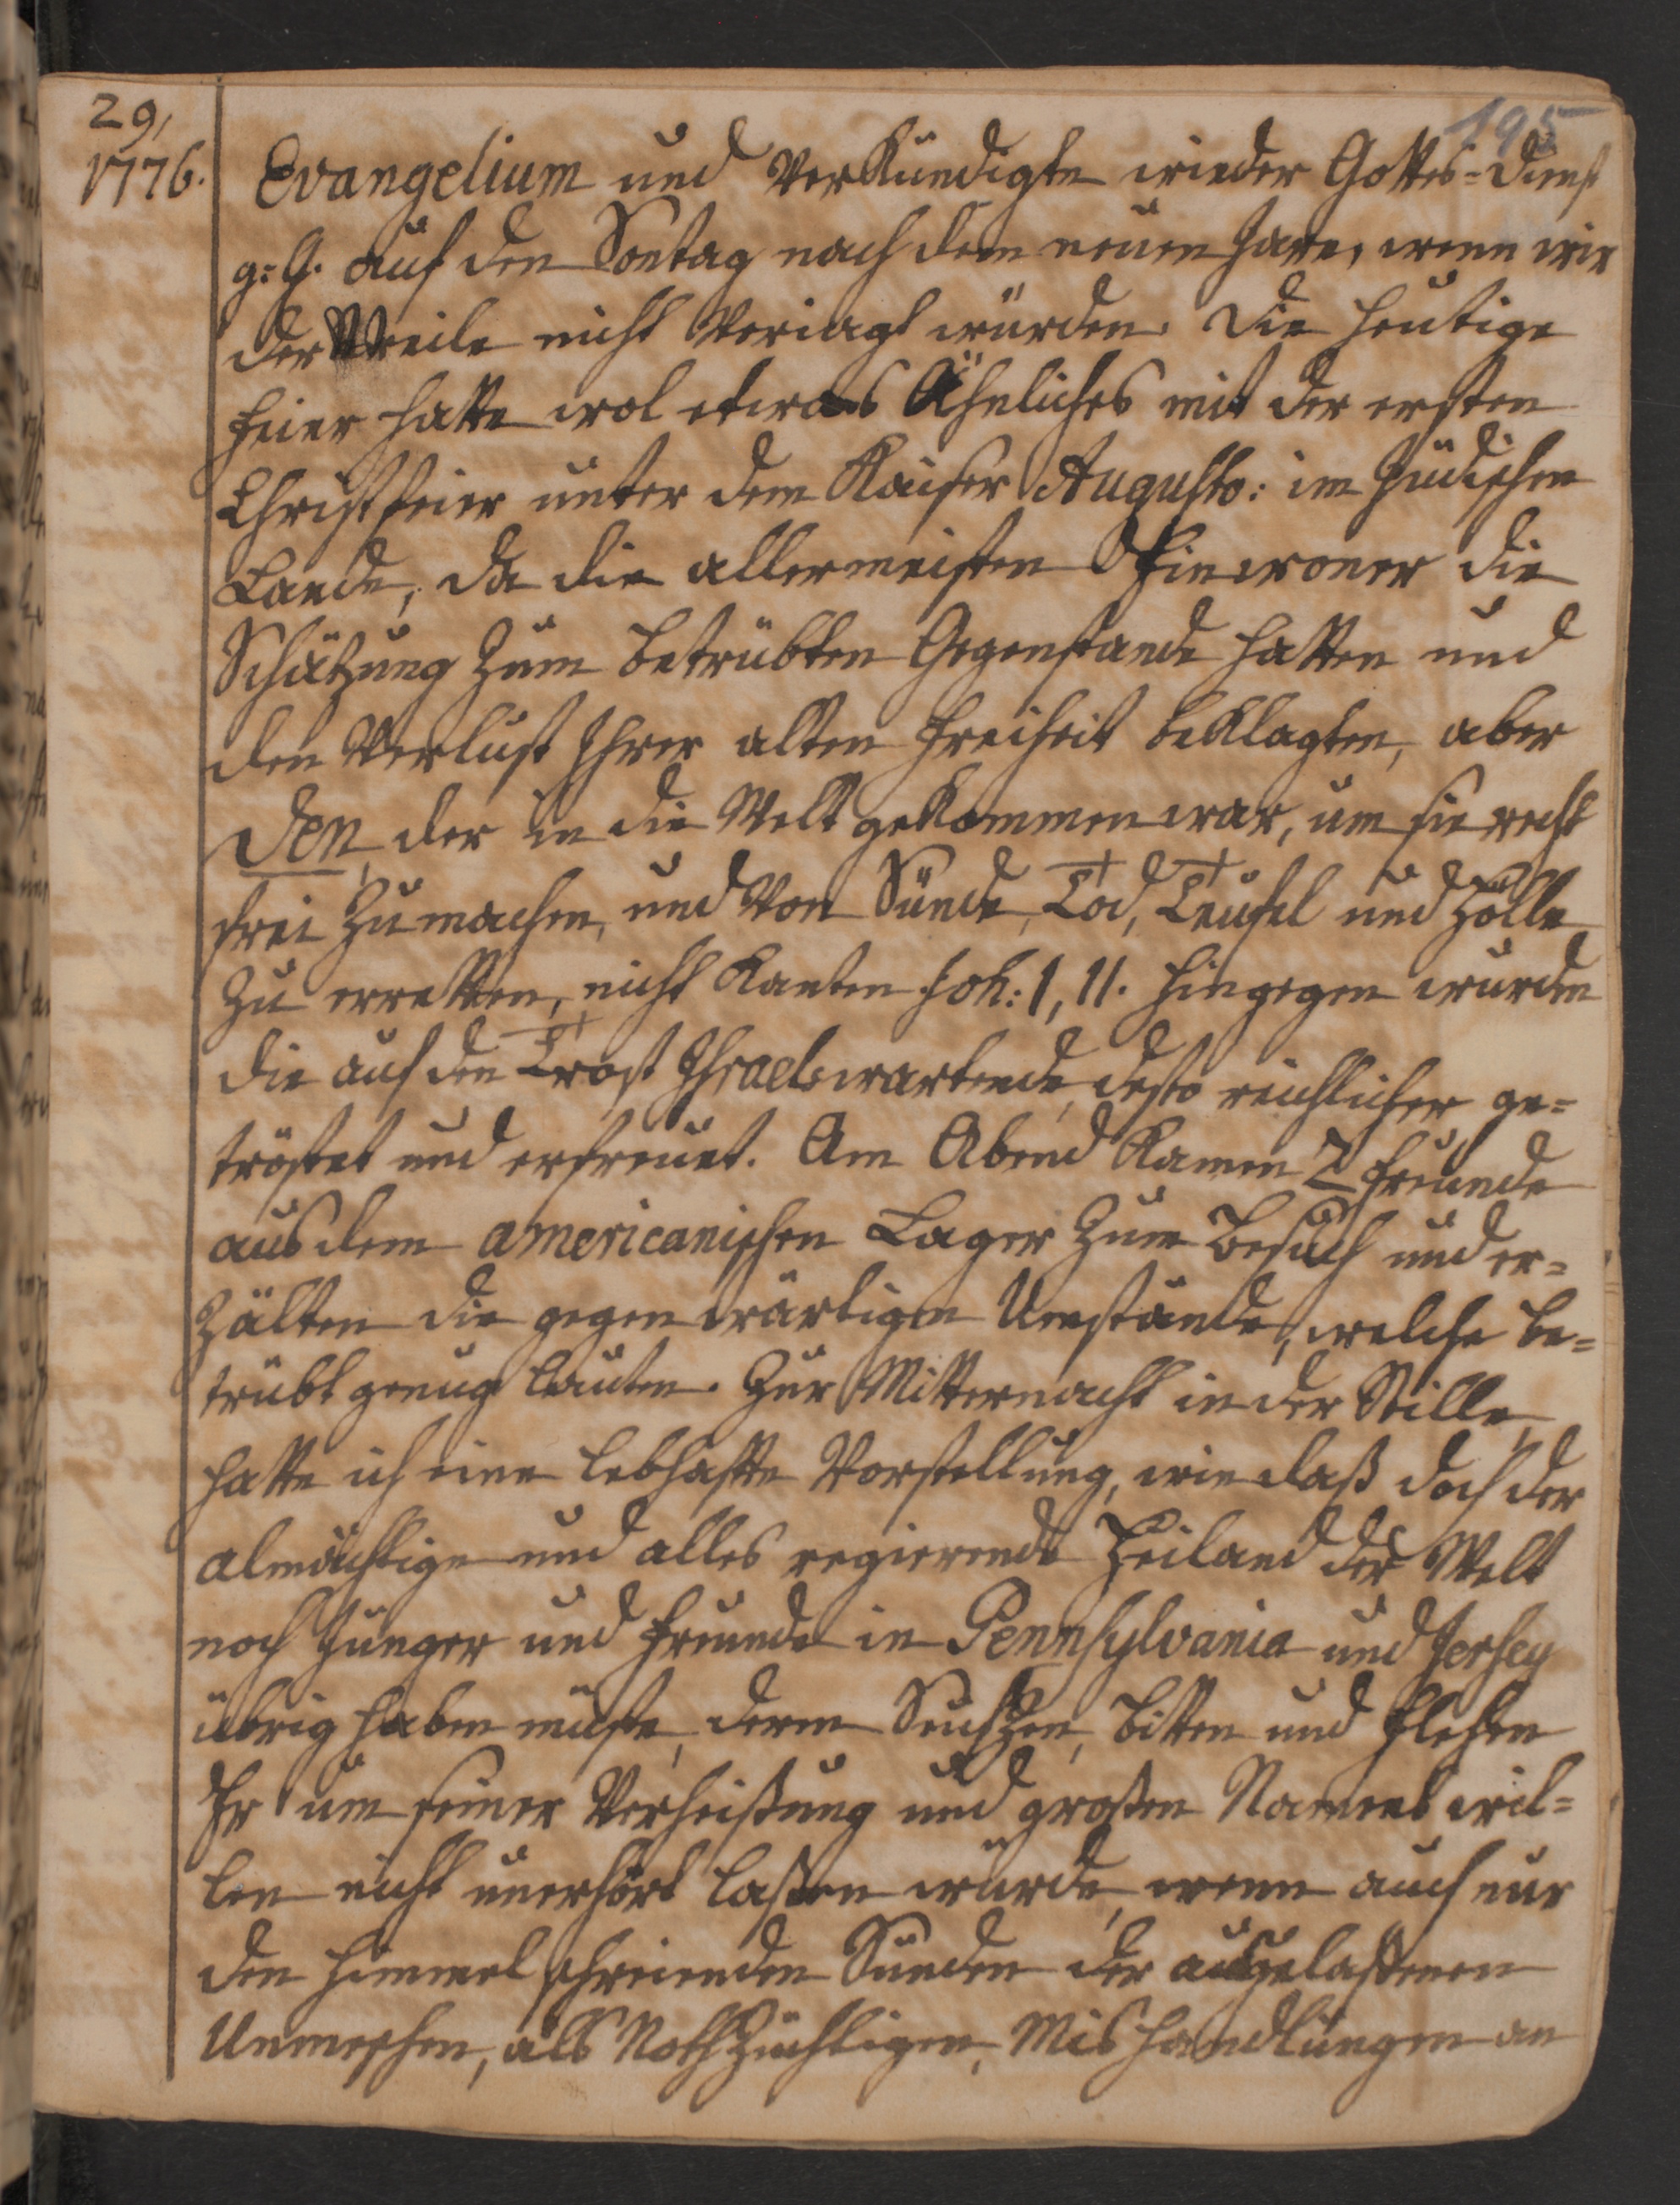 29,
1776.
195
Evangelium und verkündigte wieder Gottes-dienst
g: G. auf den Sontag nach dem neuen Jare, wenn wir
der Weile nicht veriagt würden. Die heutige
Feier hatte wol etwas Ähnliches mit der ersten
Christfeier unter dem Kaiser Augusto: im Jüdischen
Lande, da die allermeisten Einwoner die
Schätzung zum betrübten Gegenstande hatten und
den Verlust Ihrer alten Freiheit beklagten, aber
Den, der in die Welt gekommen war, um sie recht
frei zu machen, und von Sünde, Tod, Teufel und Hölle
zu erretten, nicht kanten Joh: 1, 11. Hingegen wurden
die auf den Trost Israels wartende, desto reichlicher ge=
tröstet und erfreuet. Am Abend kamen 2 Freunde
aus dem americanischen Lager zum Besuch und er=
zälten die gegenwärtigen Umstände, welche be=
trübt genug lauten. Zur Mitternacht in der Stille,
hatte ich eine lebhafte Vorstellung, wie daß doch der
almächtige und alles regierende Heiland der Welt
noch Jünger und Freunde in Pennsylvania und Jersey
übrig haben müste, deren Seufzen, Bitten und Flehen
Er um seiner Verheißung und großen Namens wil=
len nicht unerhört laßen würde, wenn auch nur
den Himmel schreienden Sünden der ausgelaßenen
Unmenschen, als Nothzüchtigen, Mishandlungen an